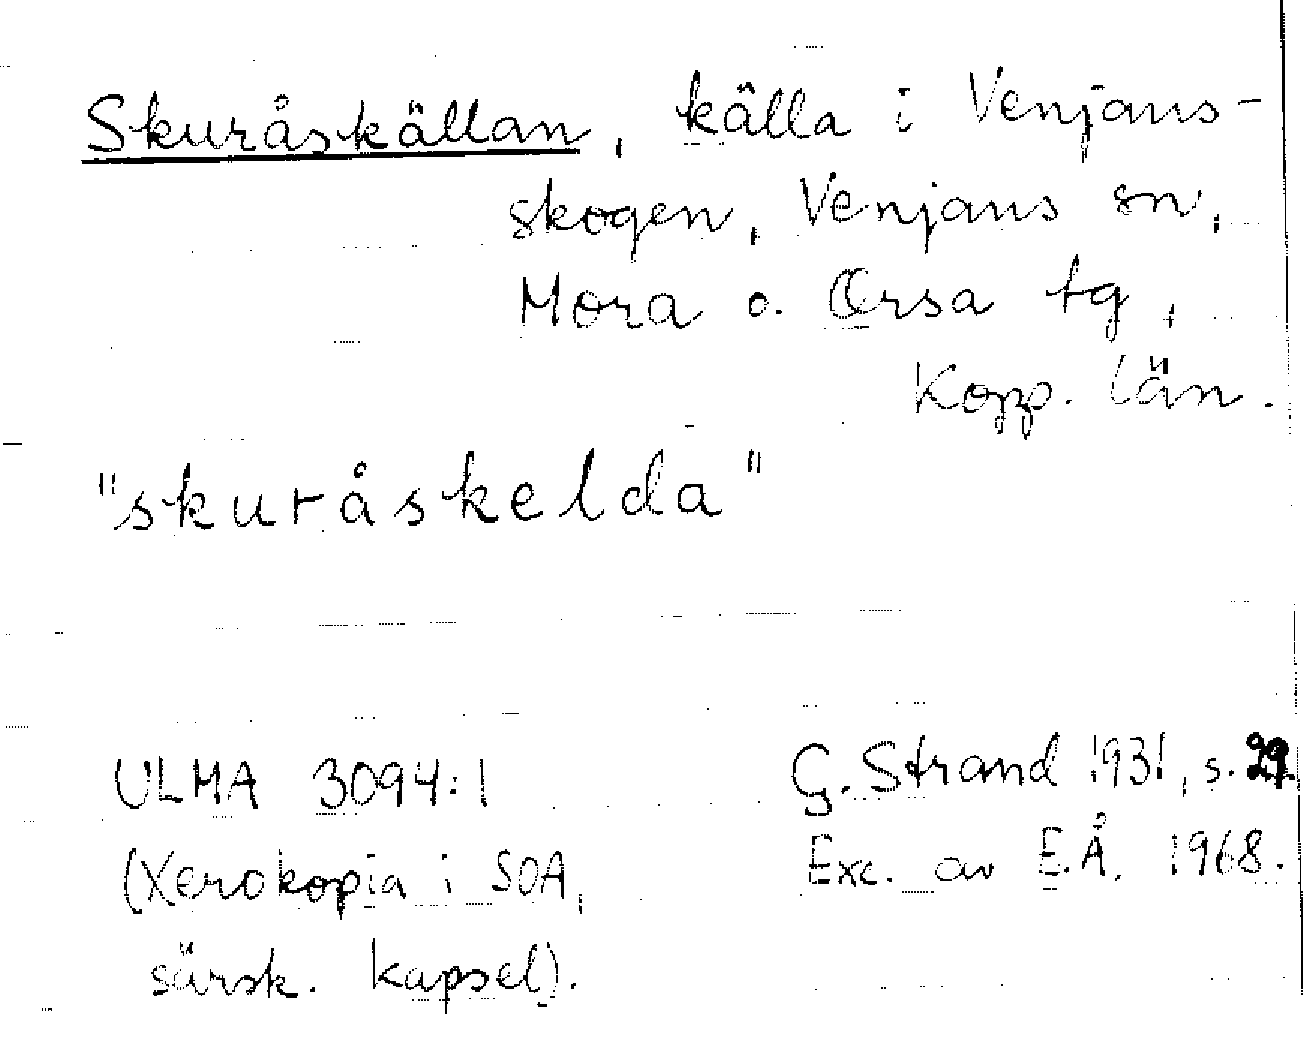 Skuråskällan, källa i Venjans-
skogen, Venjans sn,
Mora o. Orsa tg,
Kopp. län.
"skuråskelda"
ULMA 3094:1
(Xerokopia i SOA,
särsk. kapsel).
G. Strand 1931, s. 29.
Exc. av E.Å. 1968.